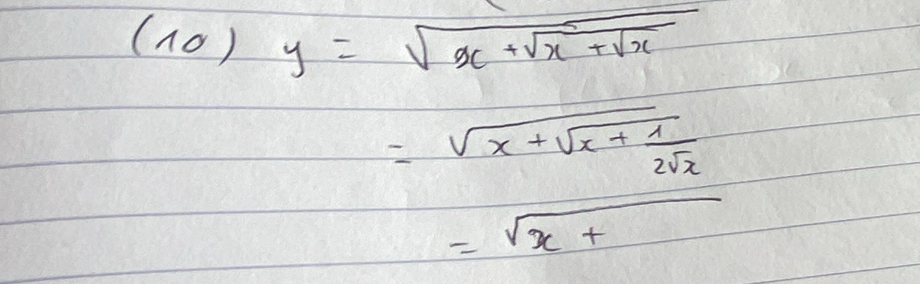 (10) y = √(x + √(x + √x))
= √(x + √(x + 1/(2√x)))
= √(x +